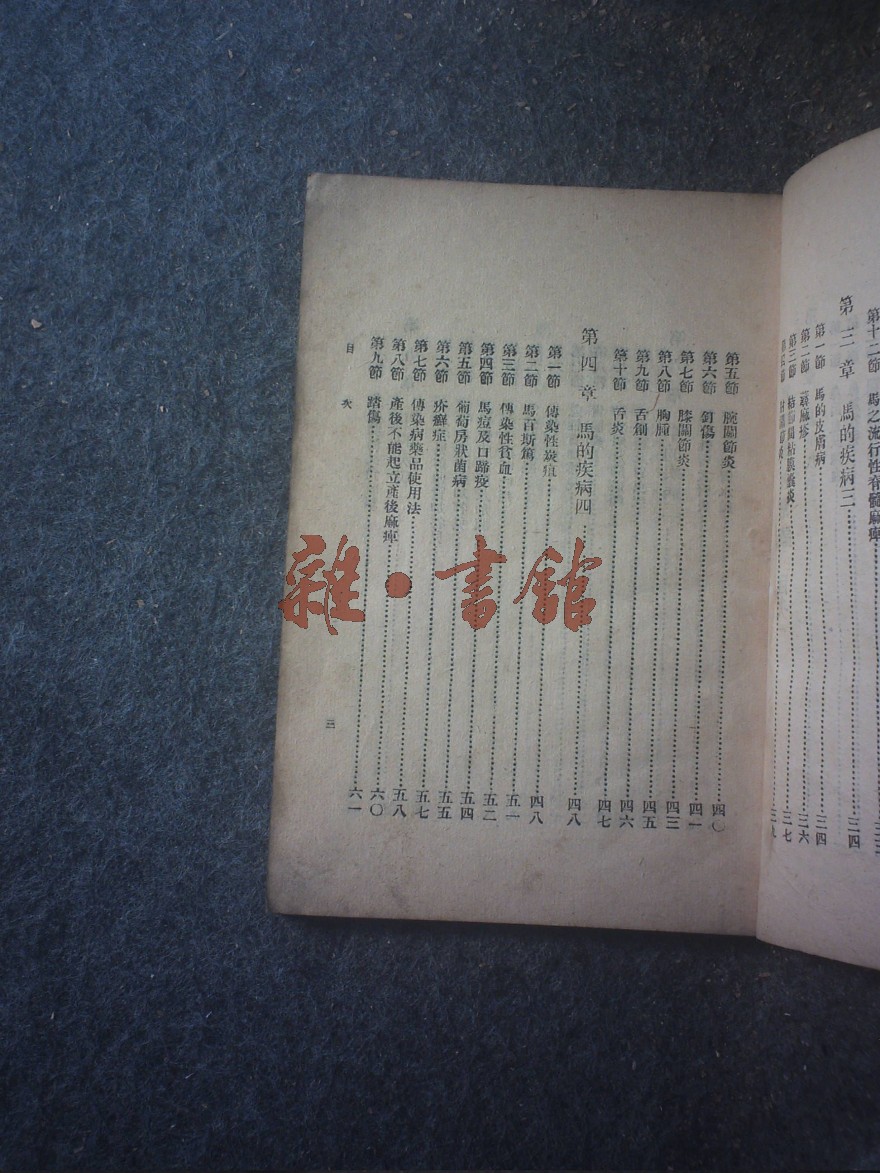 第十二節 馬之流行性脊髓麻痺
第三章 馬的疾病三……三四
第一節 馬的皮膚病……三四
第二節 蕁麻疹……三六
第三節 粘膜囊炎……三七
第五節 腕關節炎……四〇
第六節 釘傷……四一
第七節 膝關節炎……四三
第八節 胸腫……四五
第九節 舌創……四六
第十節 舌炎……四七
第四章 馬的疾病四……四八
第一節 傳染性炭疽……四八
第二節 馬百斯篤……五一
第三節 傳染性貧血……五二
第四節 馬痘及口蹄疫……五四
第五節 葡萄房狀菌病……五五
第六節 疥癬症……五七
第七節 傳染病藥品使用法……五八
第八節 產後不能起立產後麻痺……六〇
第九節 踏傷……六一
目次 三
雜·書館